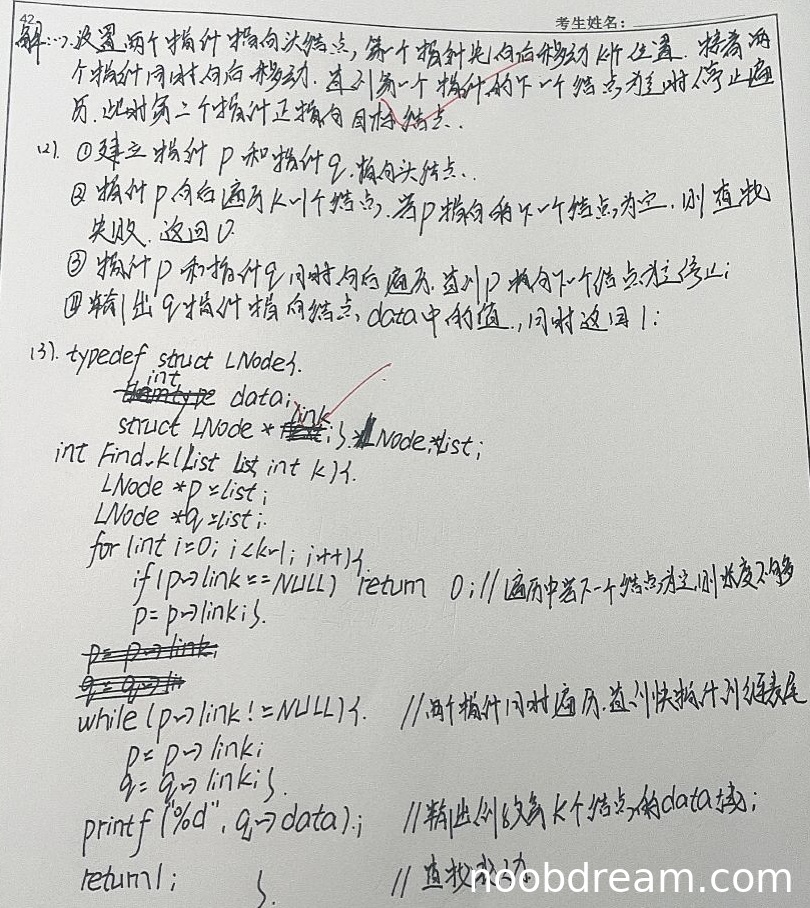 42
考生姓名：
解：(1). 设置两个指针指向头结点，第一个指针先向后移动K个位置. 接着两
个指针同时向后移动. 直到第一个指针的下一个结点为空时停止遍
历. 此时第二个指针正指向目标结点.
(2). ①建立指针 p 和指针 q. 指向头结点.
② 指针 p 向后遍历 k-1个结点. 若p指向的下一个结点为空. 则查找
失败. 返回 0.
③ 指针 p 和指针 q 同时向后遍历. 直到 p 指向下一个结点为空停止;
④ 输出 q 指针指向结点 data 中的值, 同时返回 1;
(3). typedef struct LNode{
int
data;
link
struct LNode * ;} LNode,*List;
int Find_k(List list, int k){
LNode *p=list;
LNode *q=list;
for(int i=0; i<k-1; i++){
if(p->link==NULL) return 0; // 遍历中若下一个结点为空,则长度不够
p=p->link;}
p=p->link;
while(p->link!=NULL){ // 两个指针同时遍历.直到快指针到链表尾
p=p->link;
q=q->link;}
printf("%d", q->data); // 输出倒数第K个结点的data域;
return 1; } // 查找成功
noobdream.com